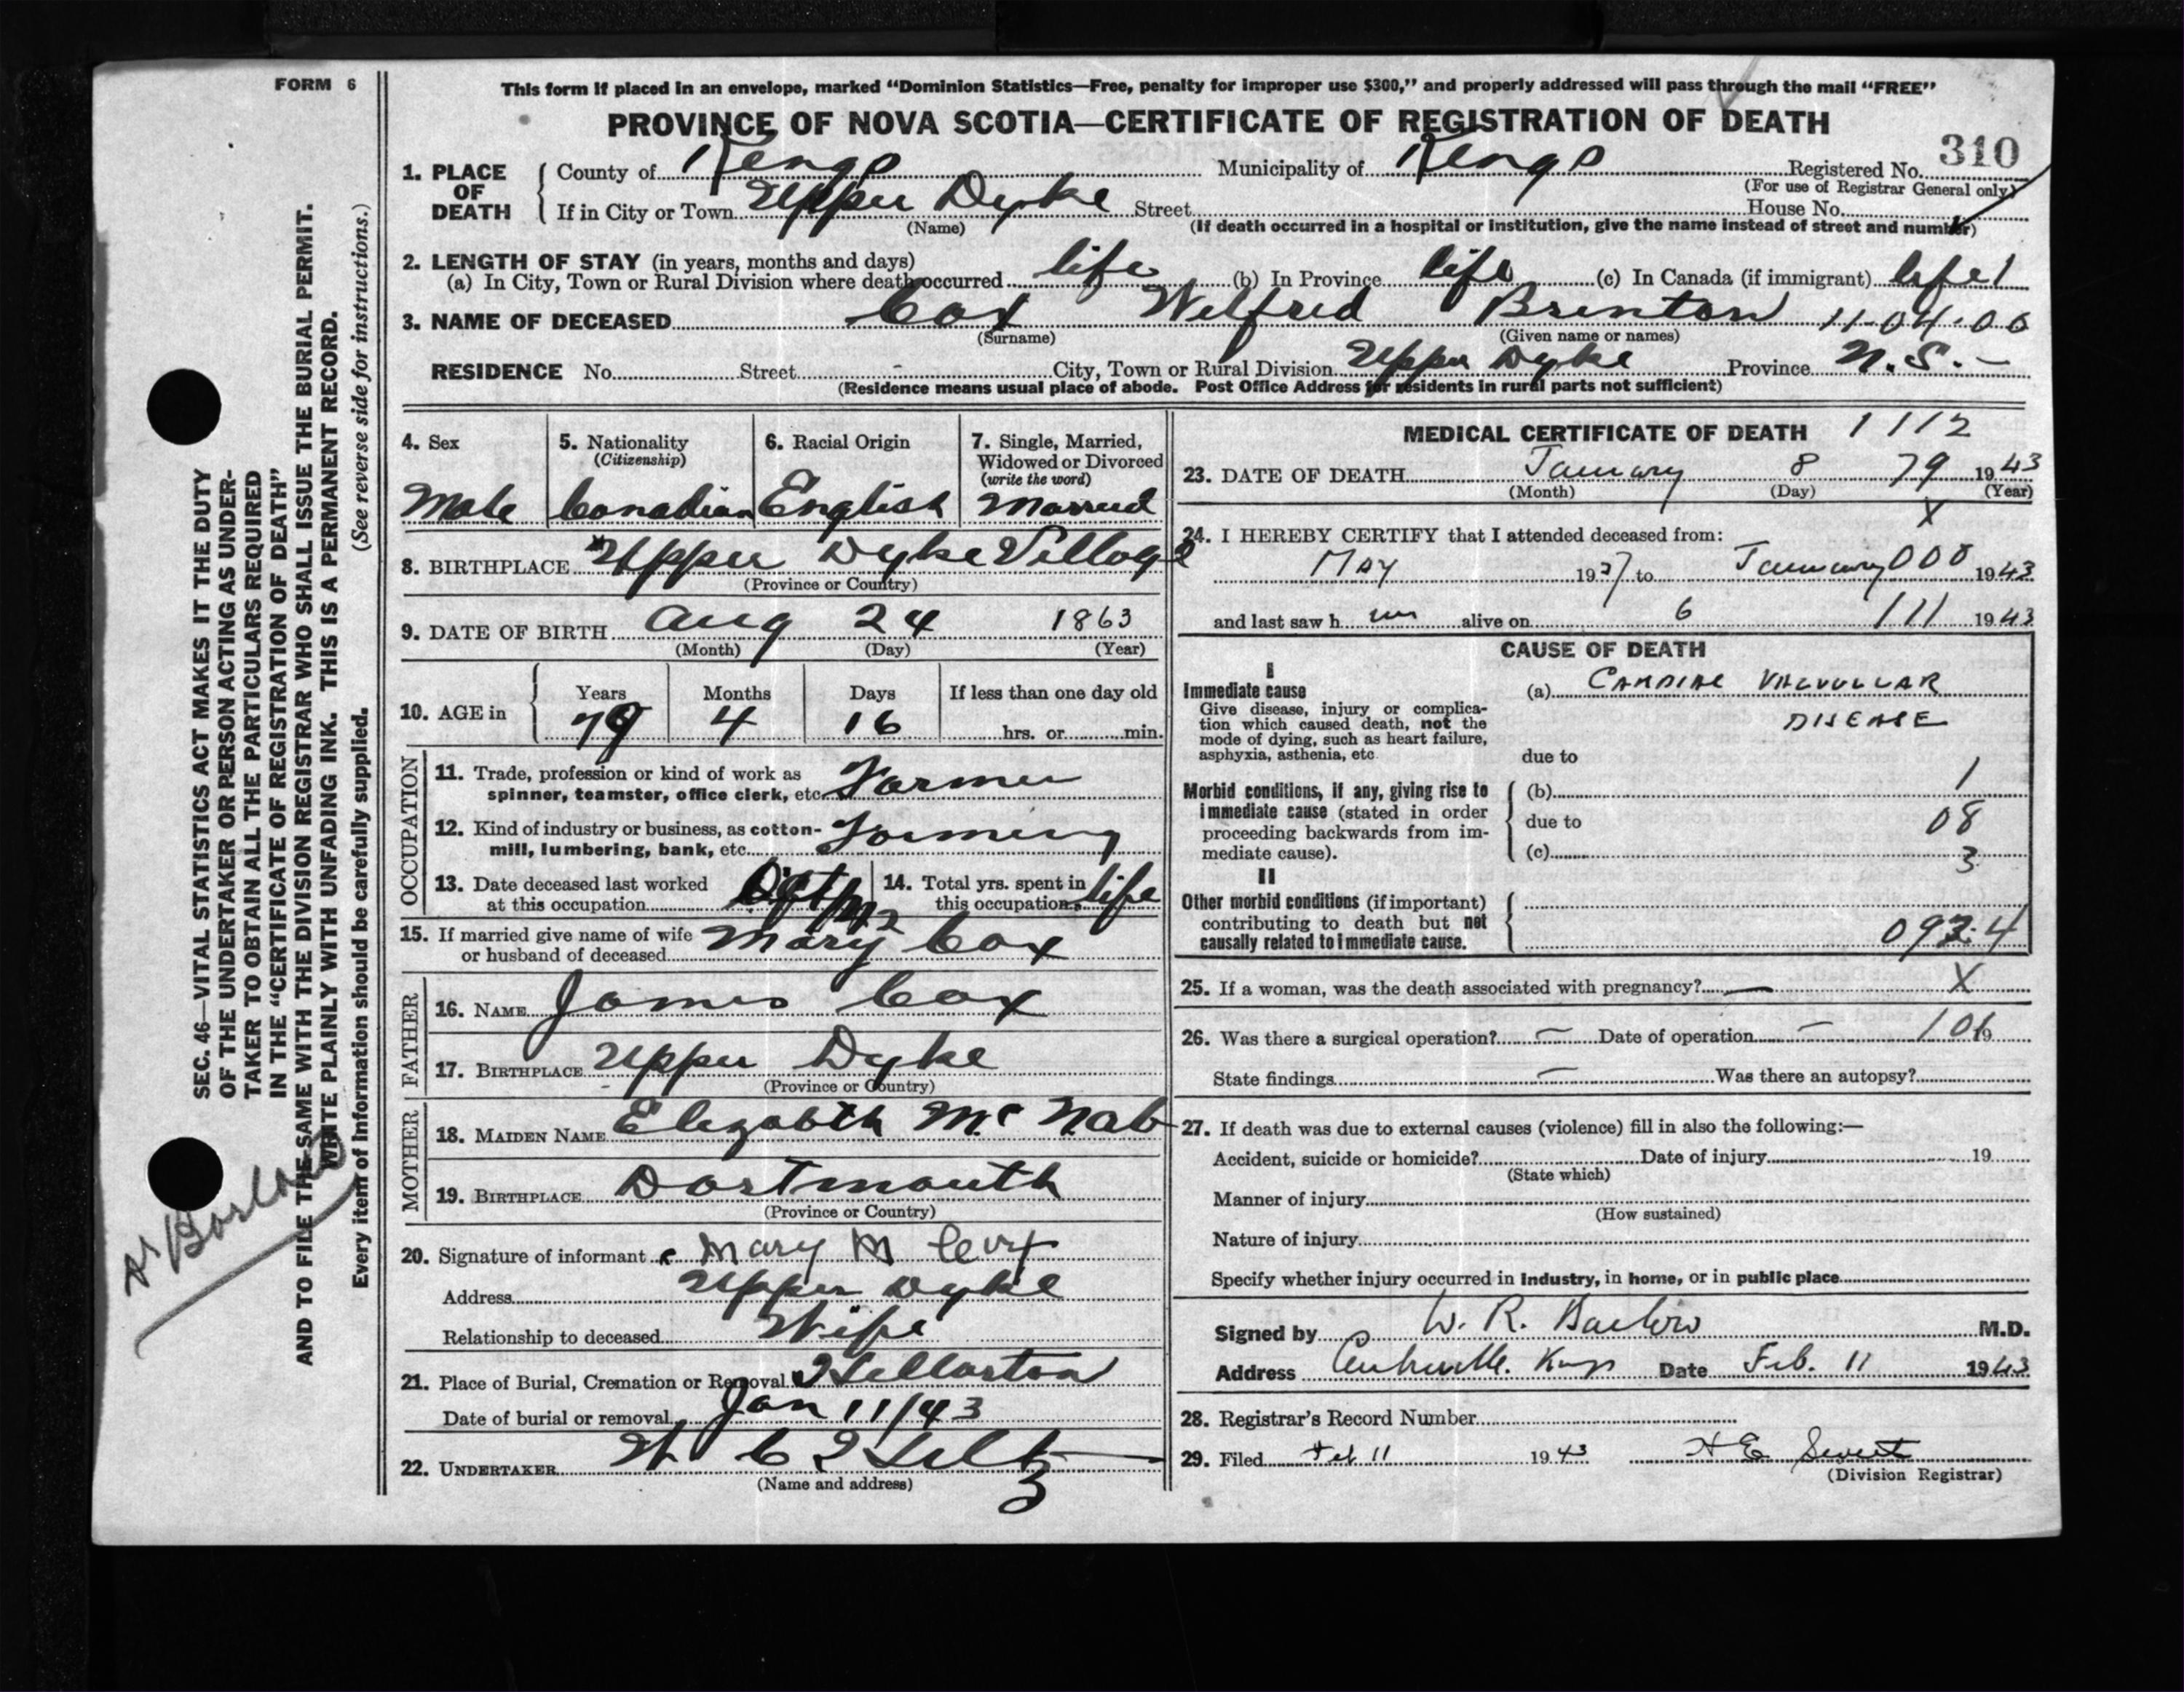 FORM 6
This form if placed in an envelope, marked "Dominion Statistics—Free, penalty for improper use $300," and properly addressed will pass through the mail "FREE"
PROVINCE OF NOVA SCOTIA—CERTIFICATE OF REGISTRATION OF DEATH
310
1. PLACE OF DEATH
County of Kings Municipality of Kings Registered No.
(For use of Registrar General only)
If in City or Town Upper Dyke Street House No.
(Name) (If death occurred in a hospital or institution, give the name instead of street and number)
2. LENGTH OF STAY (in years, months and days)
(a) In City, Town or Rural Division where death occurred life (b) In Province life (c) In Canada (if immigrant) life 1
3. NAME OF DECEASED Cox Wilfred Brenton 11-04-00
(Surname) (Given name or names)
RESIDENCE No. Street City, Town or Rural Division Upper Dyke Province N.S.
(Residence means usual place of abode. Post Office Address for residents in rural parts not sufficient)
4. Sex
Male
5. Nationality
(Citizenship)
Canadian
6. Racial Origin
English
7. Single, Married,
Widowed or Divorced
(write the word)
Married
8. BIRTHPLACE Upper Dyke Village
(Province or Country)
9. DATE OF BIRTH Aug 24 1863
(Month) (Day) (Year)
10. AGE in
Years Months Days If less than one day old
79 4 16 hrs. or min.
OCCUPATION
11. Trade, profession or kind of work as
spinner, teamster, office clerk, etc. Farmer
12. Kind of industry or business, as cotton-
mill, lumbering, bank, etc. Farming
13. Date deceased last worked
at this occupation 42
14. Total yrs. spent in
this occupation life
15. If married give name of wife
or husband of deceased Mary Cox
FATHER
16. NAME James Cox
17. BIRTHPLACE Upper Dyke
(Province or Country)
MOTHER
18. MAIDEN NAME Elizabeth McNab
19. BIRTHPLACE Dartmouth
(Province or Country)
20. Signature of informant Mary M Cox
Address Upper Dyke
Relationship to deceased Wife
21. Place of Burial, Cremation or Removal
Date of burial or removal Jan 11/43
22. UNDERTAKER
(Name and address)
MEDICAL CERTIFICATE OF DEATH 1112
23. DATE OF DEATH January 8 79 1943
(Month) (Day) (Year)
X
24. I HEREBY CERTIFY that I attended deceased from:
May 1937 to January 008 1943
and last saw h im alive on 6 111 1943
CAUSE OF DEATH
I
Immediate cause
Give disease, injury or complica-
tion which caused death, not the
mode of dying, such as heart failure,
asphyxia, asthenia, etc.
(a) CARDIAC VALVULLAR
DISEASE
due to
Morbid conditions, if any, giving rise to
immediate cause (stated in order
proceeding backwards from im-
mediate cause).
(b) 1
due to 08
(c) 3
II
Other morbid conditions (if important)
contributing to death but not
causally related to immediate cause.
092.4
25. If a woman, was the death associated with pregnancy? — X
26. Was there a surgical operation? — Date of operation — 101 19
State findings — Was there an autopsy?
27. If death was due to external causes (violence) fill in also the following:—
Accident, suicide or homicide? Date of injury 19
(State which)
Manner of injury
(How sustained)
Nature of injury
Specify whether injury occurred in industry, in home, or in public place
Signed by W. R. Barlow M.D.
Address Centreville. Kings Date Feb. 11 1943
28. Registrar's Record Number
29. Filed Feb 11 1943 H E
(Division Registrar)
SEC. 46—VITAL STATISTICS ACT MAKES IT THE DUTY
OF THE UNDERTAKER OR PERSON ACTING AS UNDER-
TAKER TO OBTAIN ALL THE PARTICULARS REQUIRED
IN THE "CERTIFICATE OF REGISTRATION OF DEATH"
AND TO FILE THE SAME WITH THE DIVISION REGISTRAR WHO SHALL ISSUE THE BURIAL PERMIT.
WRITE PLAINLY WITH UNFADING INK. THIS IS A PERMANENT RECORD.
Every item of Information should be carefully supplied. (See reverse side for instructions.)
Dr Barlow